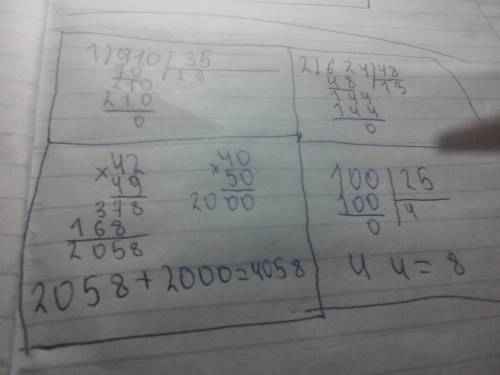 1) 910 | 35
70 26
210
210
0
2) 624 | 48
48 13
144
144
0
×42
49
378
168
2058
×40
50
2000
2058 + 2000 = 4058
100 | 25
100 4
0
4 . 4 = 8